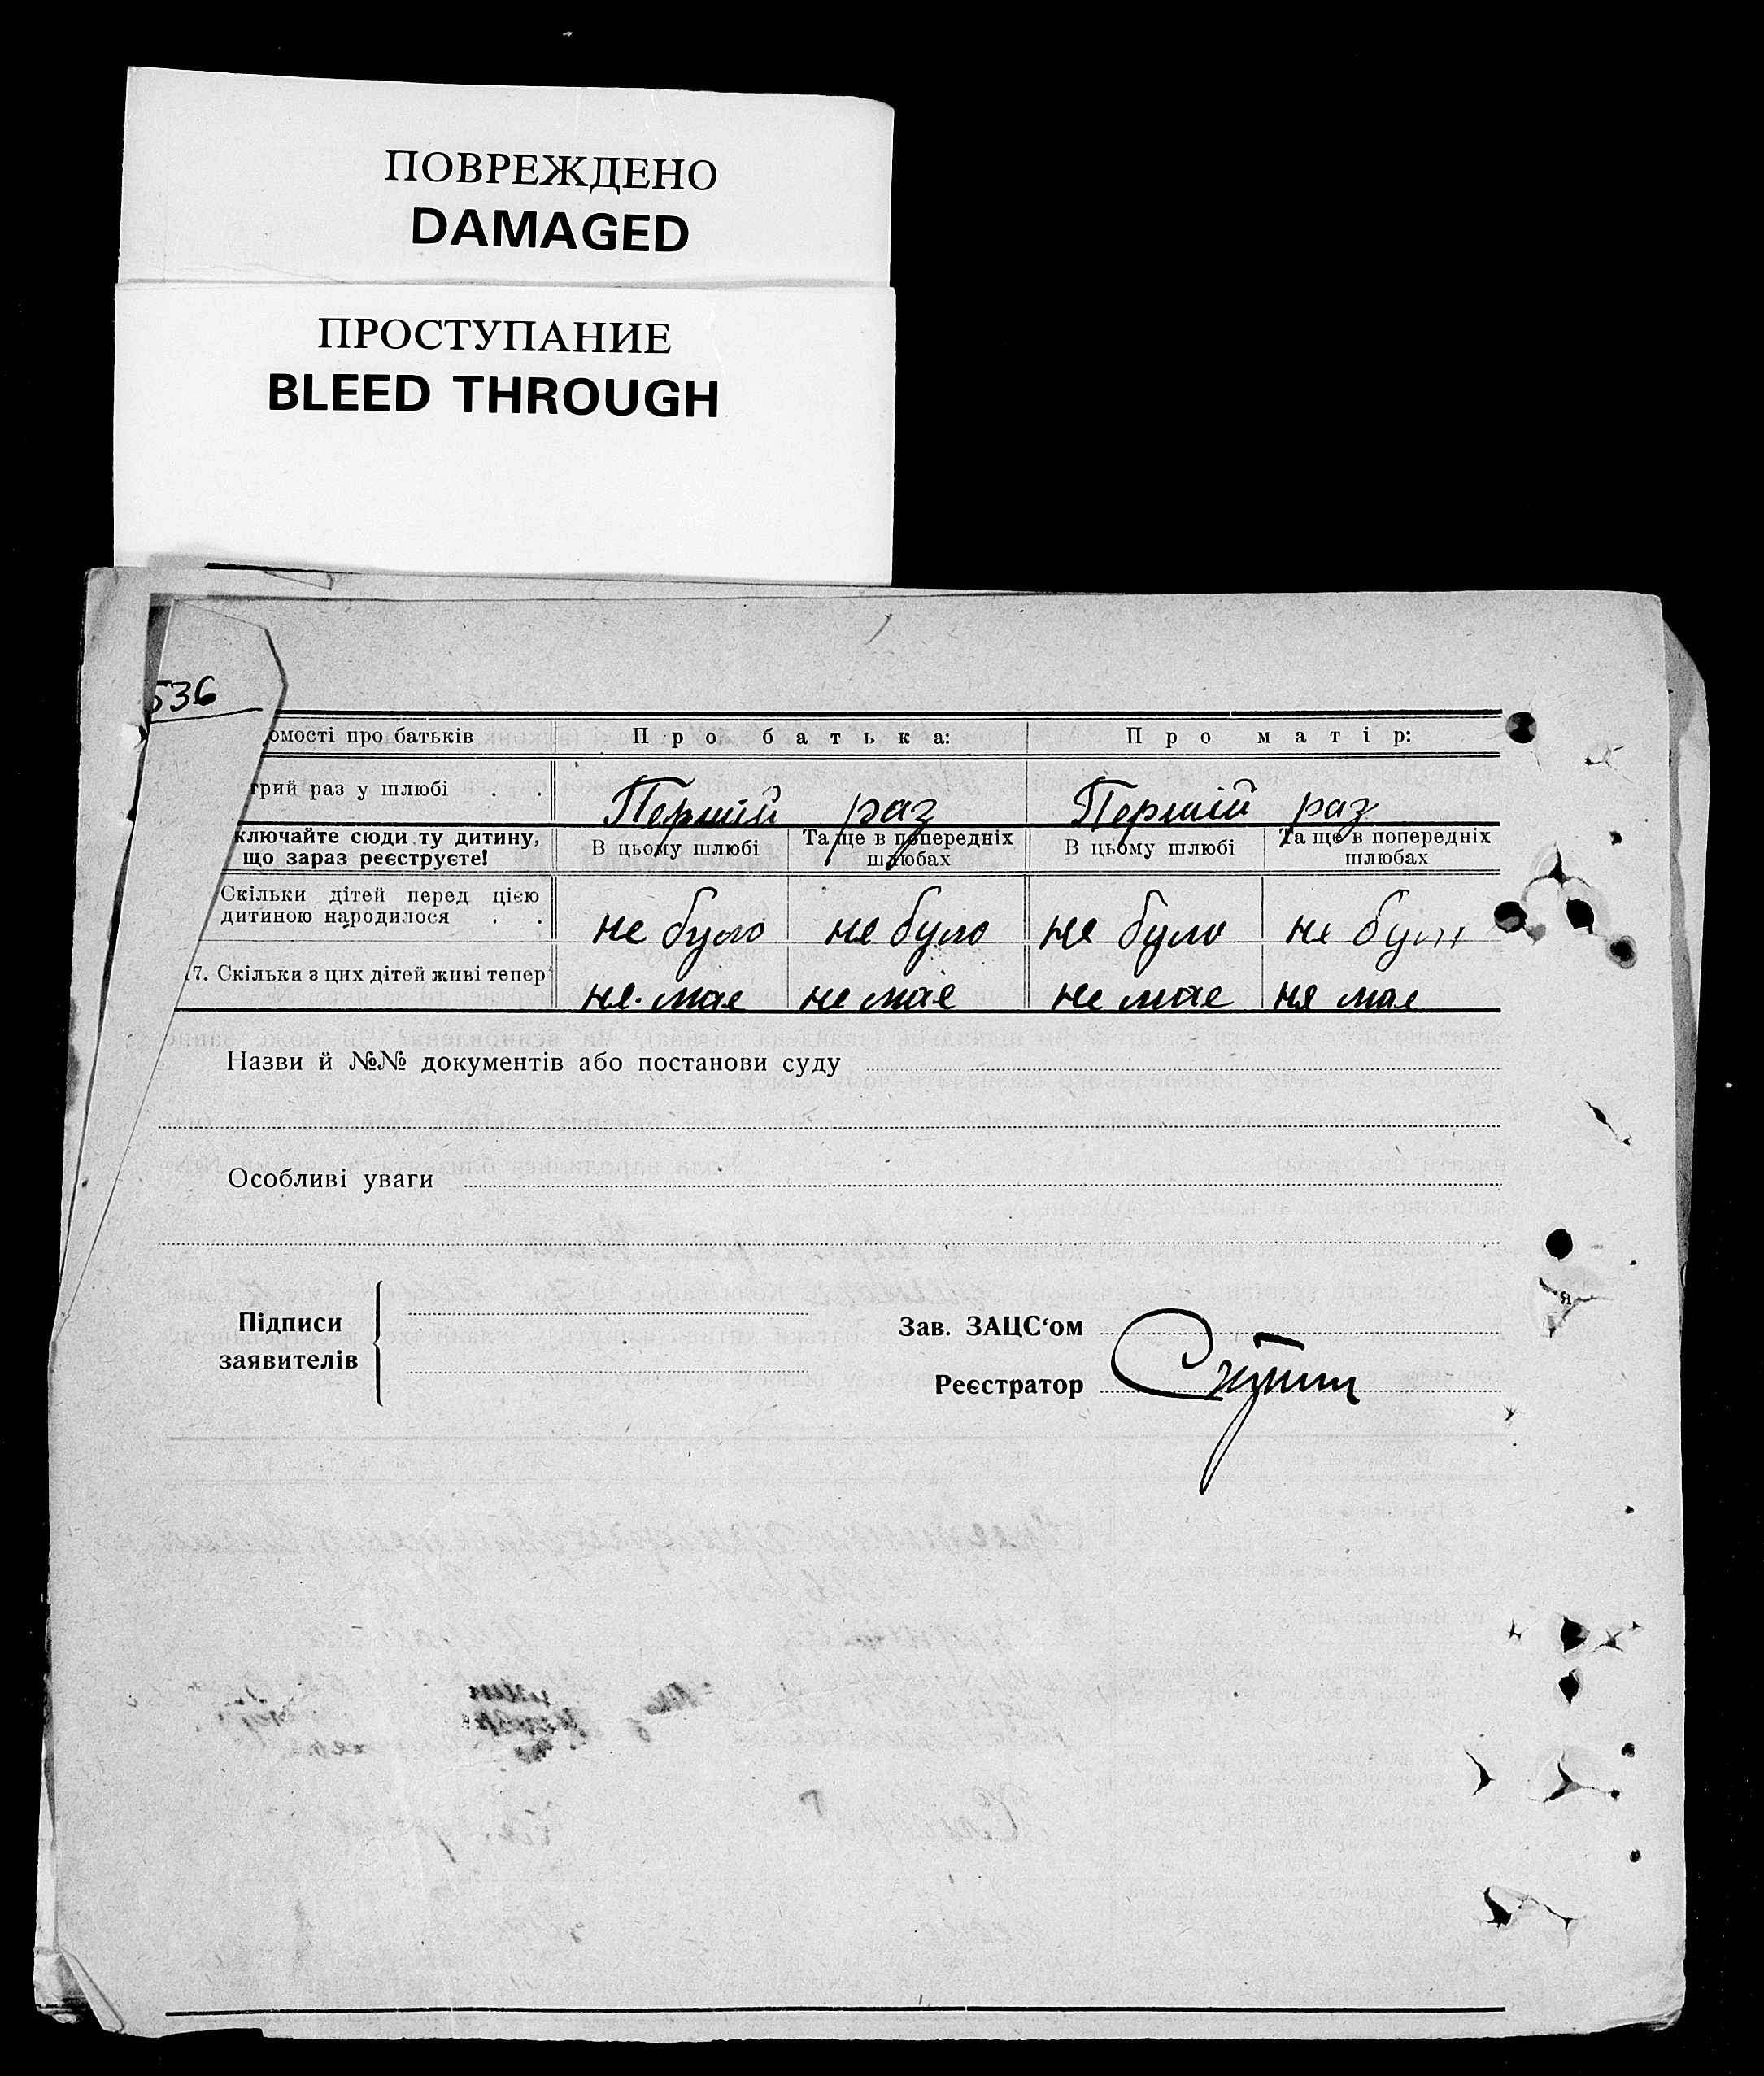 ПОВРЕЖДЕНО
DAMAGED
ПРОСТУПАНИЕ
BLEED THROUGH
536
омості про батьків Про батька: Про матір:
трий раз у шлюбі . . Перший раз Перший раз
ключайте сюди ту дитину, що зараз реєструєте! В цьому шлюбі Та ще в попередніх шлюбах В цьому шлюбі Та ще в попередніх шлюбах
Скільки дітей перед цією дитиною народилося . . не було не було не було не було
17. Скільки з цих дітей живі тепер не має не має не має не має
Назви й №№ документів або постанови суду
Особливі уваги
Підписи заявителів
Зав. ЗАЦС‘ом
Реєстратор